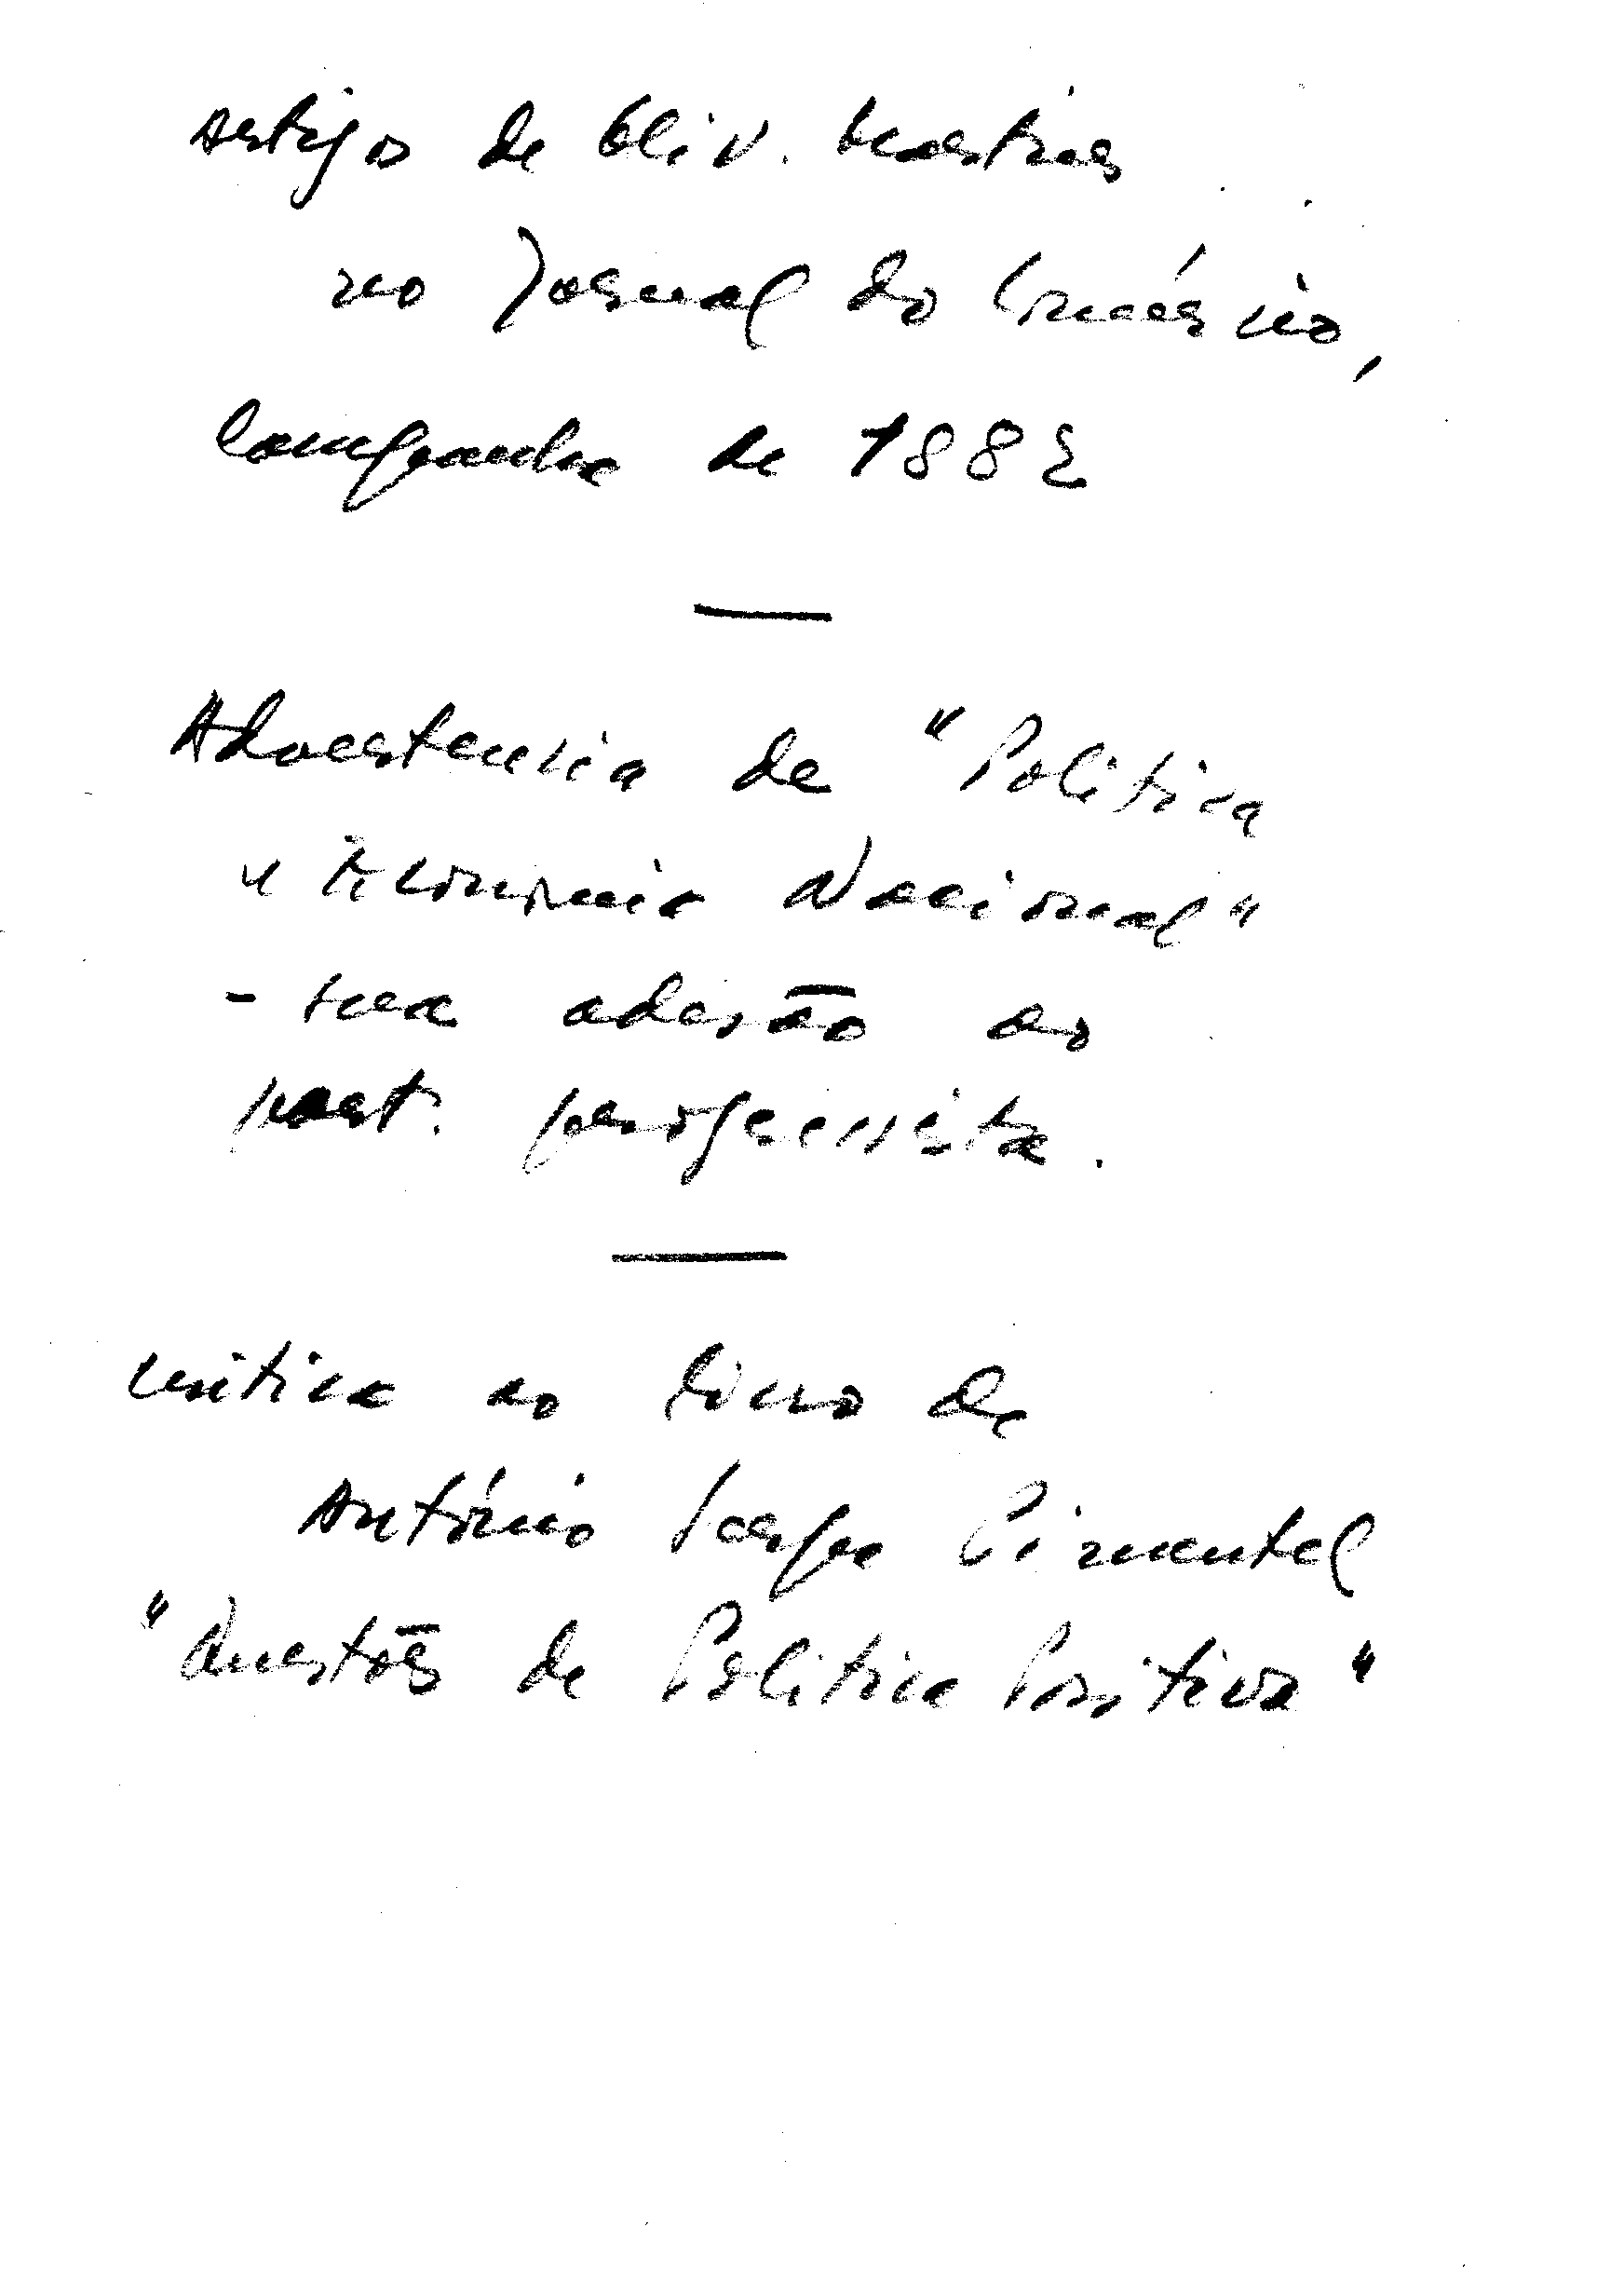 Artigos de Oliv. Martins
no Jornal do Comércio,
Campanha de 1882
Advertencia de "Politica
e Economia Nacional"
- sua adesão ao
part. progressista.
Critica ao livro de
António Serpa Pimentel
"Questões de Politica Positiva"